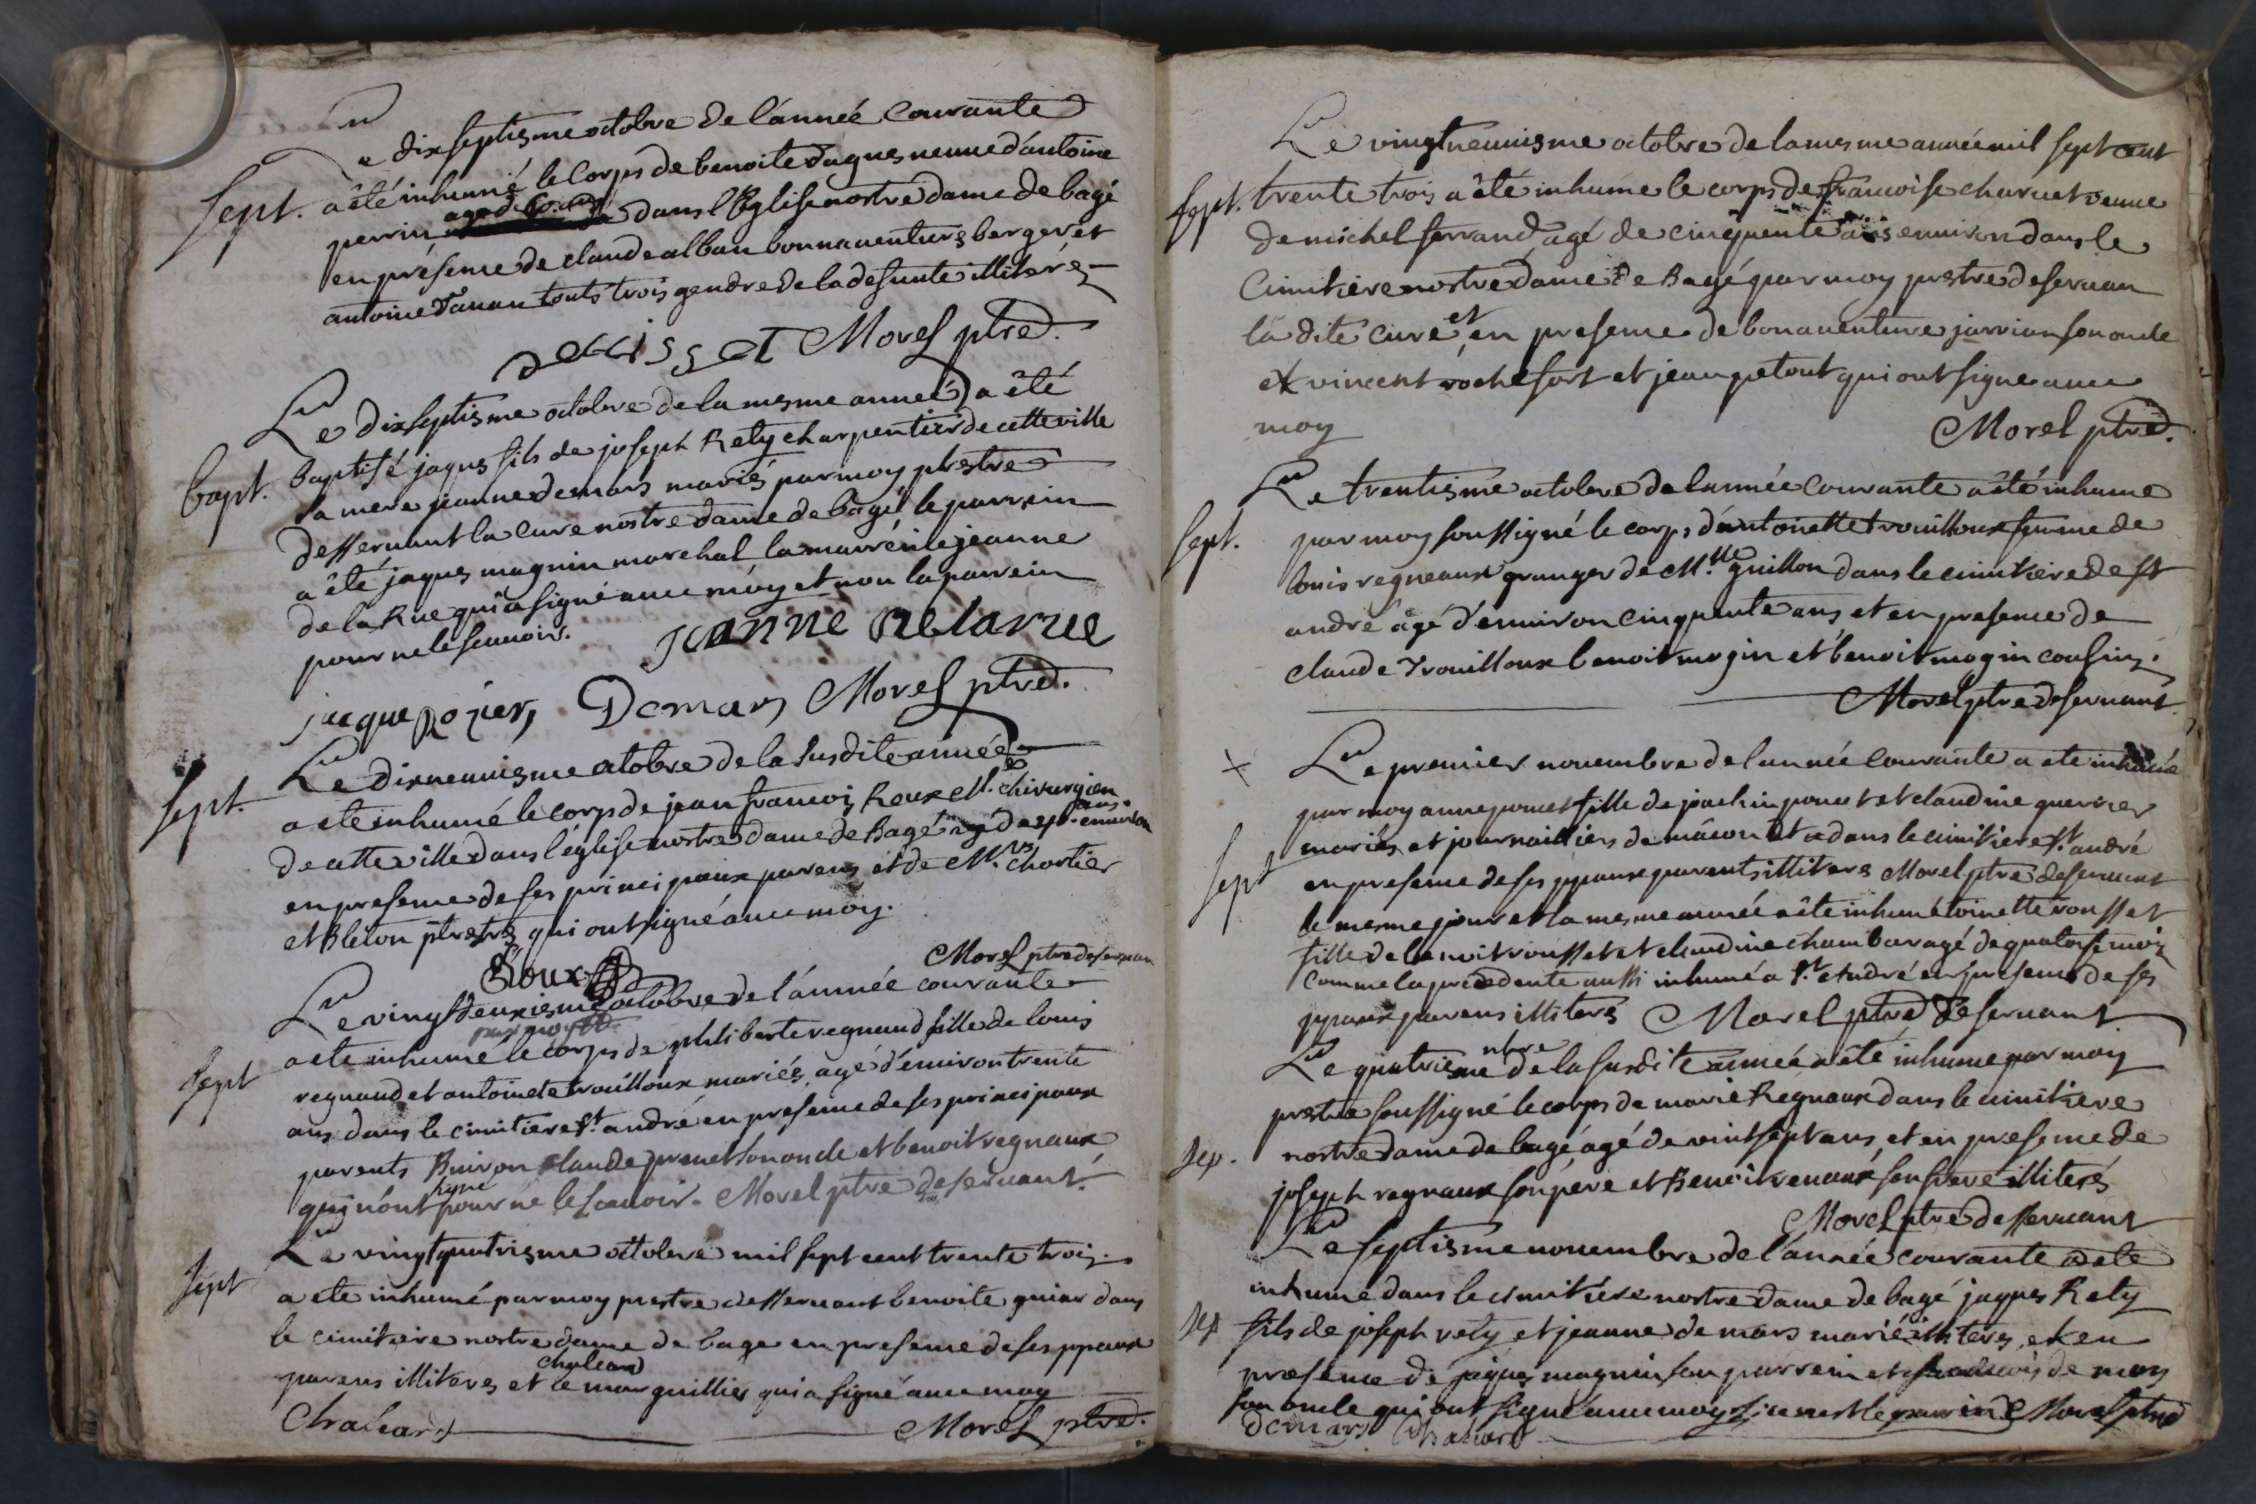 Le dixseptisme octobre de l'année courante
Sept. a êté inhumé le corps de benoite
perrin agé de 60 ans dans l'Eglise nostre dame de bagé
en présence de claude alban bonnaventure berger et
antoine tous trois gendre de la defunte illiterés
Morel ptre d.
Le dixseptisme octobre de la mesme année a êté
bapt. Baptisé jaques fils de joseph Rety charpentier de cette ville
sa mere jeanne demars mariés par moy prestre
desservant la cure nostre dame de bagé le parrain
a êté jaques magnin marechal la marreine jeanne
de la Rue qui a signé avec moy et non la parrein
pour ne le scavoir.
jeanne delarue
jacque Demars Morel ptre d.
Le dixneuvisme octobre de la susdite année
Sept. a ete inhumé le corps de jean francois Roux Mr. chirurgien
de cette ville dans l'église nostre dame de Bagé agé de ans environ
en presence de ses principaux parens et de Mrs chortier
et Bleton prestres qui ont signé avec moy.
Roux Morel ptre deservan
Le vingtdeuxiesme octobre de l'année courante
par moy
Sept a ete inhumé le corps de philiberte regnaud fille de louis
regnaud et antoinete trouilloux mariés agé d'environ trente
ans dans le cimitiere st. andré en presence de ses principaux
parents Buiron claude son oncle et benoit regnaux
qui n'ont signé pour ne le scavoir. Morel ptre deservant.
Le vingtquatrisme octobre mil sept cent trente trois
Sept a ete inhumé par moy prestre desservant benoite guiar dans
le cimitiere nostre dame de bage en presence de ses ppaux
parens illiteres et chaleard le marguillier qui a signé avec moy
Chaleard Morel ptre d.
Le vingtneuvisme octobre de la mesme année mil sept cent
Sept. trente trois a êté inhumé le corps de francoise charvet veuve
de michel ferrand agé de cinquente ans environ dans le
Cimitiere nostre dame de Bagé par moy prestre deservan
la dite cure et en presence de bonaventure jarvian son oncle
et vincent rochefort et jean petout qui ont signe avec
moy Morel ptre d.
Le trentisme octobre de l'année courante a êté inhume
Sept. par moy soussigné le corps d'antoinette trouilloux femme de
louis regneaux granger de Mlle guillon dans le cimitiere de st
andré agé d'environ cinquente ans et en presence de
claude Trouilloux benoit mogin et benoit mogin cousins.
Morel ptre deservant
x Le premier novembre de l'année courante a ete inhumé
par moy anne poncet fille de joachin poncet et claudine guerrier
mariés et journailliers de mâcon dans le cimitiere st. andré
Sept en presence de ses ppaux parents illiteres Morel ptre deservant
le mesme jour et la mesme année a ête inhumé toinette rousset
fille de benoit rousset et claudine chambar agé de quatorse mois
comme la precedente aussi inhumé a st. André en presence de ses
ppaux parens illiteres Morel ptre deservant
Le quatriesme nbre de la susdite année a êté inhume par moy
prestre soussigné le corps de marie Regnaux dans le cimitiere
Sep. nostre dame de bagé agé de vintsept ans et en presence de
joseph regnaux son pere et Benoit renaux son frere illiterés
Morel ptre desservant
Le septisme novembre de l'année courante a ete
inhume dans le cimitiere nostre dame de bagé jaques Rety
Sep fils de joseph rety et jeanne de mars mariés illiteres et en
presence de jaques magnin son parrein et francois de mars
son oncle qui ont signé avec moy si ce n'est le parrin Morel ptre d
demars Chaleard